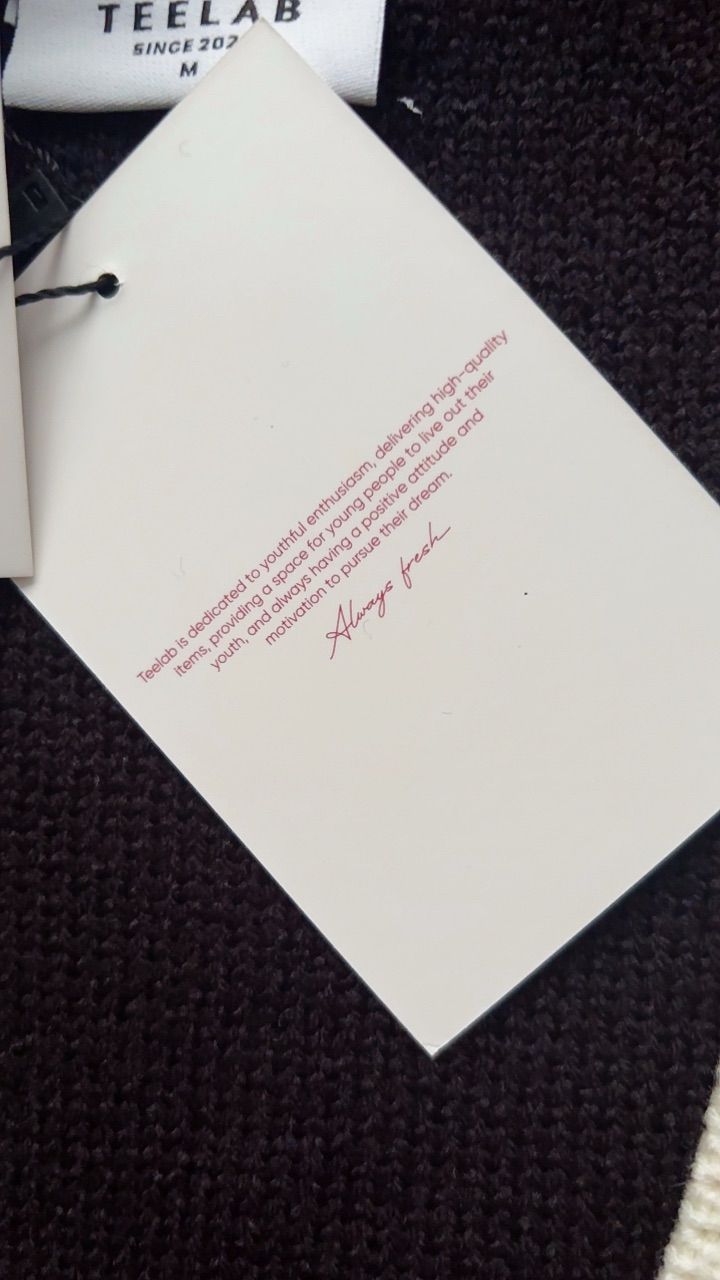 TEELAB
SINCE 202
M
Teelab is dedicated to youthful enthusiasm, delivering high-quality
items, providing a space for young people to live out their
youth, and always having a positive attitude and
motivation to pursue their dream.
Always fresh